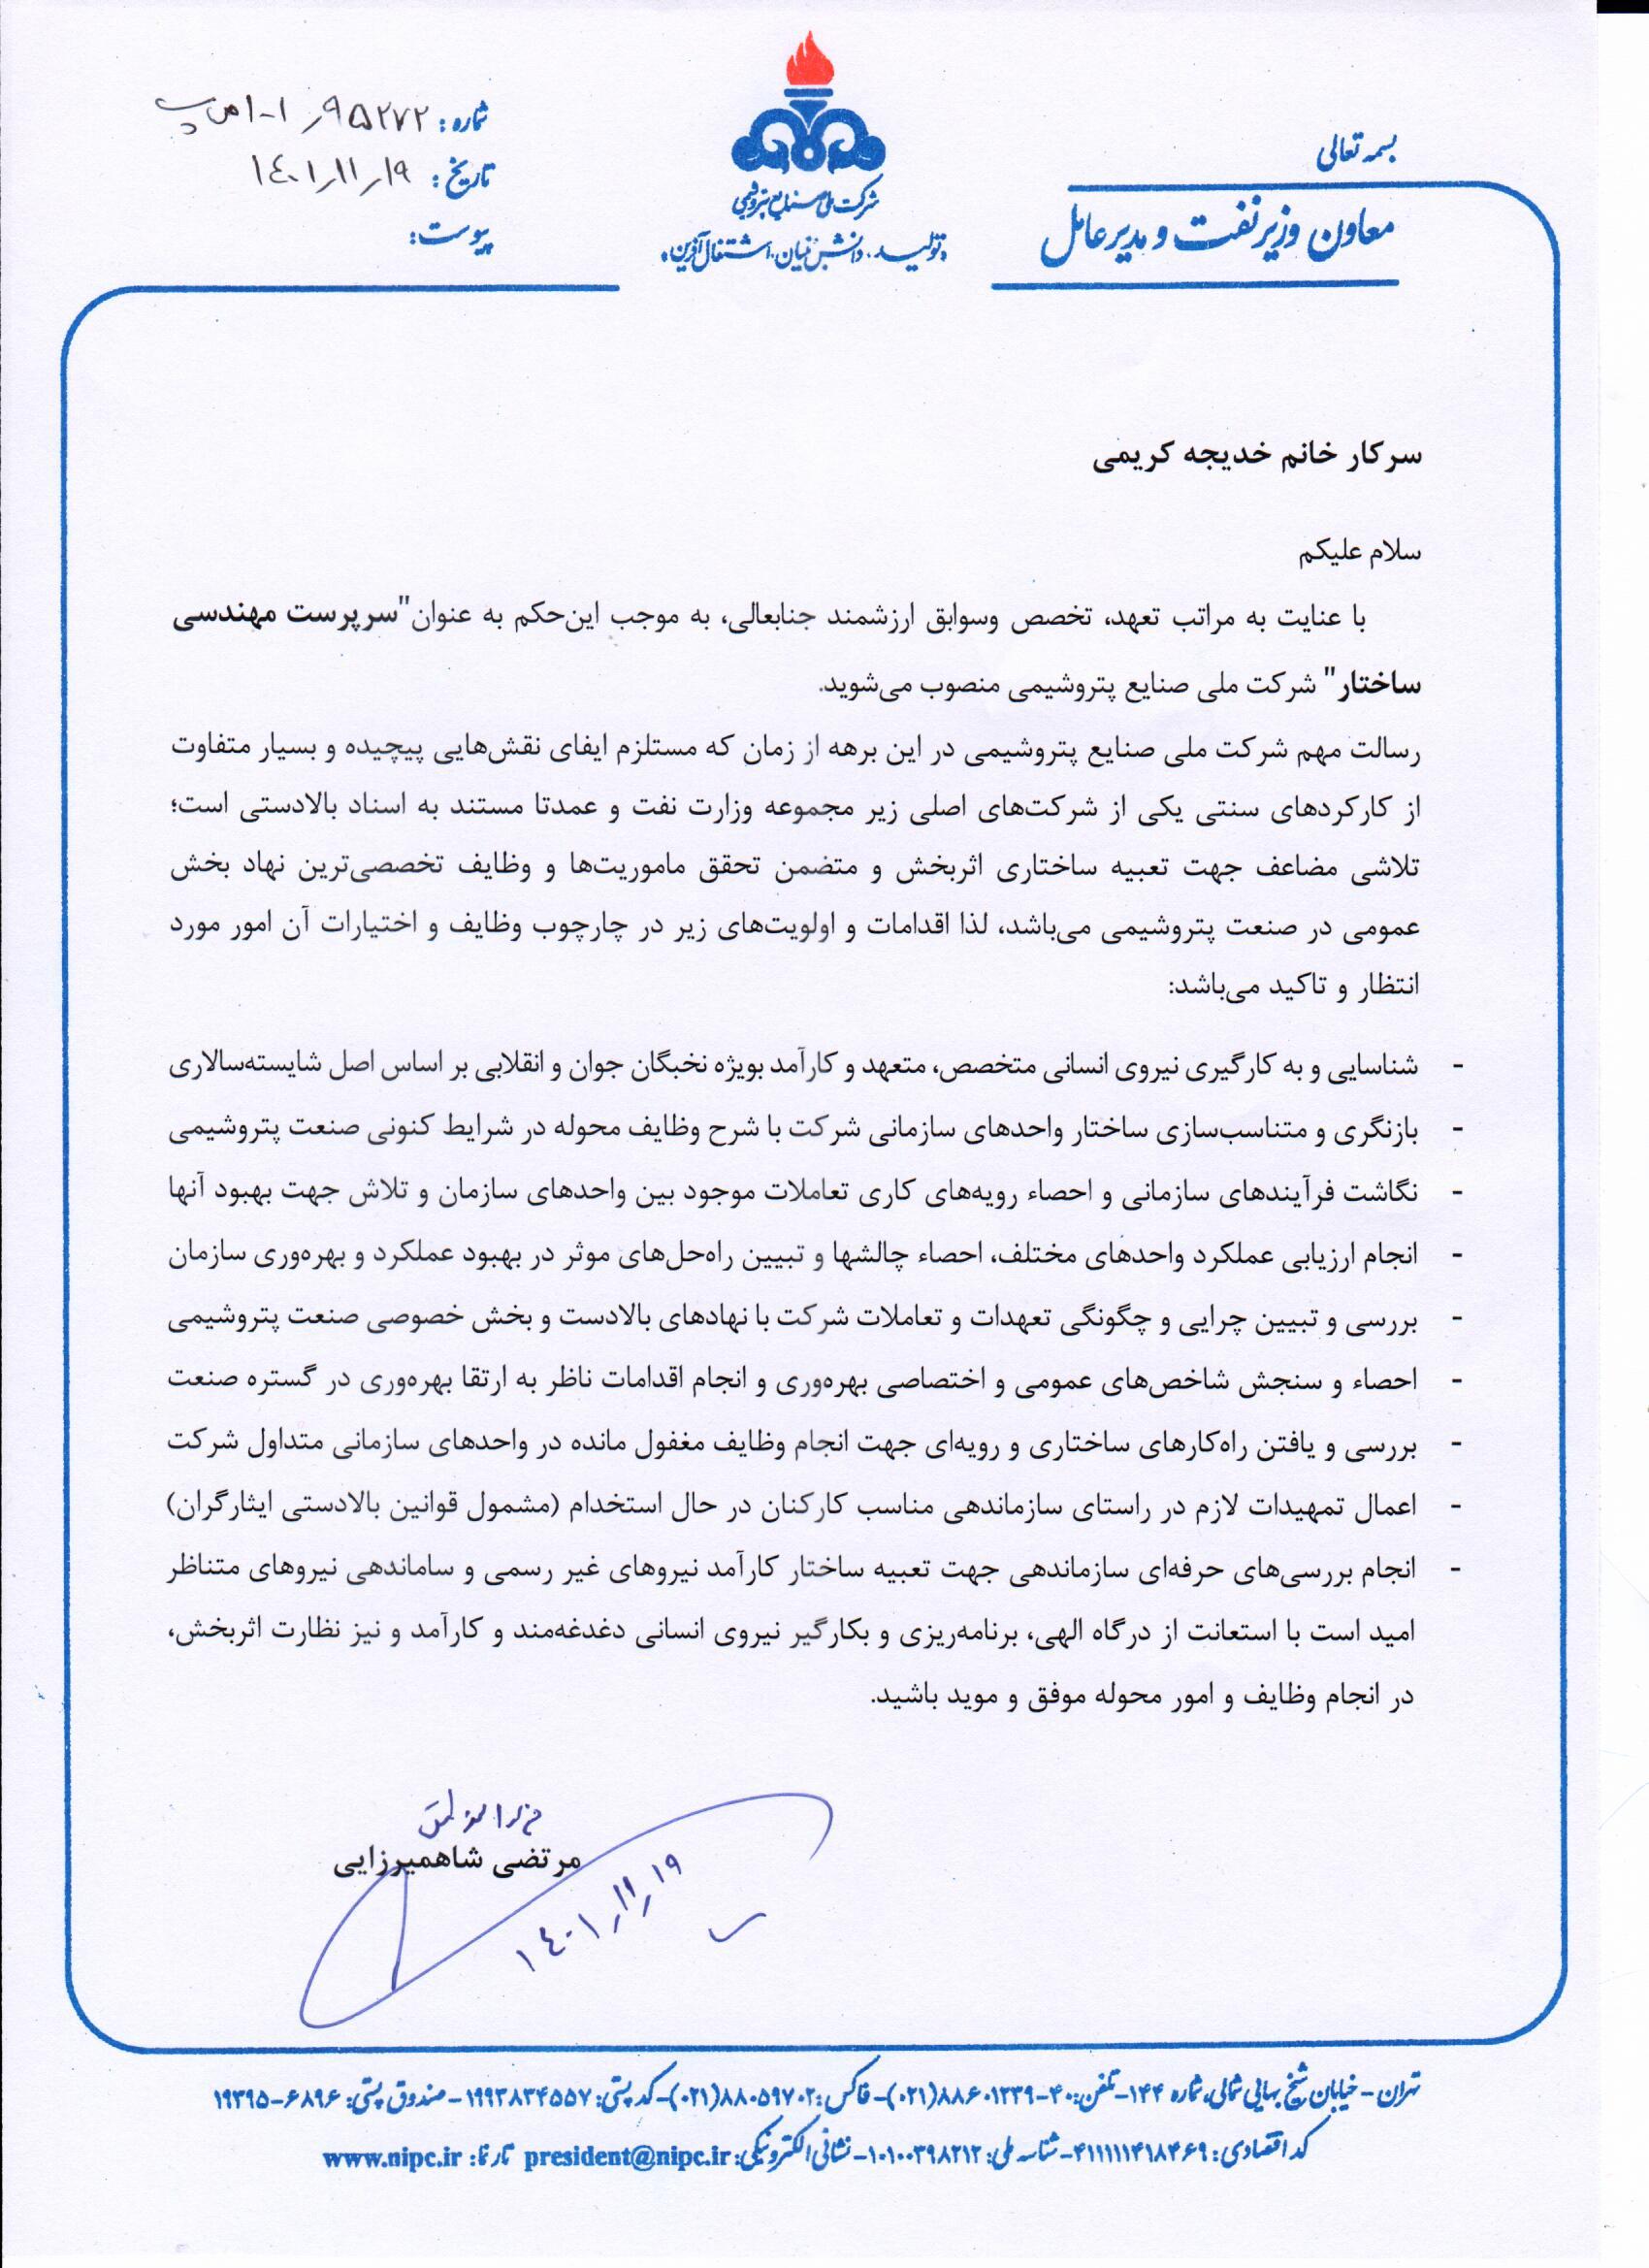 بسمه تعالی
معاون وزیر نفت و مدیرعامل
شرکت ملی صنایع پتروشیمی
«تولید، دانش‌بنیان، اشتغال‌آفرین»
شماره: ۹۵۲۷۲
تاریخ: ۱۴۰۱/۱۱/۱۹
پیوست:
سرکار خانم خدیجه کریمی
سلام علیکم
با عنایت به مراتب تعهد، تخصص وسوابق ارزشمند جنابعالی، به موجب این‌حکم به عنوان"سرپرست مهندسی
ساختار" شرکت ملی صنایع پتروشیمی منصوب می‌شوید.
رسالت مهم شرکت ملی صنایع پتروشیمی در این برهه از زمان که مستلزم ایفای نقش‌هایی پیچیده و بسیار متفاوت
از کارکردهای سنتی یکی از شرکت‌های اصلی زیر مجموعه وزارت نفت و عمدتا مستند به اسناد بالادستی است؛
تلاشی مضاعف جهت تعبیه ساختاری اثربخش و متضمن تحقق ماموریت‌ها و وظایف تخصصی‌ترین نهاد بخش
عمومی در صنعت پتروشیمی می‌باشد، لذا اقدامات و اولویت‌های زیر در چارچوب وظایف و اختیارات آن امور مورد
انتظار و تاکید می‌باشد:
- شناسایی و به کارگیری نیروی انسانی متخصص، متعهد و کارآمد بویژه نخبگان جوان و انقلابی بر اساس اصل شایسته‌سالاری
- بازنگری و متناسب‌سازی ساختار واحدهای سازمانی شرکت با شرح وظایف محوله در شرایط کنونی صنعت پتروشیمی
- نگاشت فرآیندهای سازمانی و احصاء رویه‌های کاری تعاملات موجود بین واحدهای سازمان و تلاش جهت بهبود آنها
- انجام ارزیابی عملکرد واحدهای مختلف، احصاء چالشها و تبیین راه‌حل‌های موثر در بهبود عملکرد و بهره‌وری سازمان
- بررسی و تبیین چرایی و چگونگی تعهدات و تعاملات شرکت با نهادهای بالادست و بخش خصوصی صنعت پتروشیمی
- احصاء و سنجش شاخص‌های عمومی و اختصاصی بهره‌وری و انجام اقدامات ناظر به ارتقا بهره‌وری در گستره صنعت
- بررسی و یافتن راه‌کارهای ساختاری و رویه‌ای جهت انجام وظایف مغفول مانده در واحدهای سازمانی متداول شرکت
- اعمال تمهیدات لازم در راستای سازماندهی مناسب کارکنان در حال استخدام (مشمول قوانین بالادستی ایثارگران)
- انجام بررسی‌های حرفه‌ای سازماندهی جهت تعبیه ساختار کارآمد نیروهای غیر رسمی و ساماندهی نیروهای متناظر
امید است با استعانت از درگاه الهی، برنامه‌ریزی و بکارگیر نیروی انسانی دغدغه‌مند و کارآمد و نیز نظارت اثربخش،
در انجام وظایف و امور محوله موفق و موید باشید.
مرتضی شاهمیرزایی
۱۴۰۱/۱۱/۱۹
تهران - خیابان شیخ بهایی شمالی، شماره ۱۴۴- تلفن: ۴۰-۸۸۶۰۱۲۳۹(۰۲۱)- فاکس: ۸۸۰۵۹۷۰۲(۰۲۱)- کد پستی: ۱۹۹۳۸۳۴۵۵۷- صندوق پستی: ۶۸۹۶-۱۹۳۹۵
کد اقتصادی: ۴۱۱۱۱۱۴۱۸۴۶۹- شناسه ملی: ۱۰۱۰۰۳۹۸۲۱۲- نشانی الکترونیکی: president@nipc.ir تارنما: www.nipc.ir